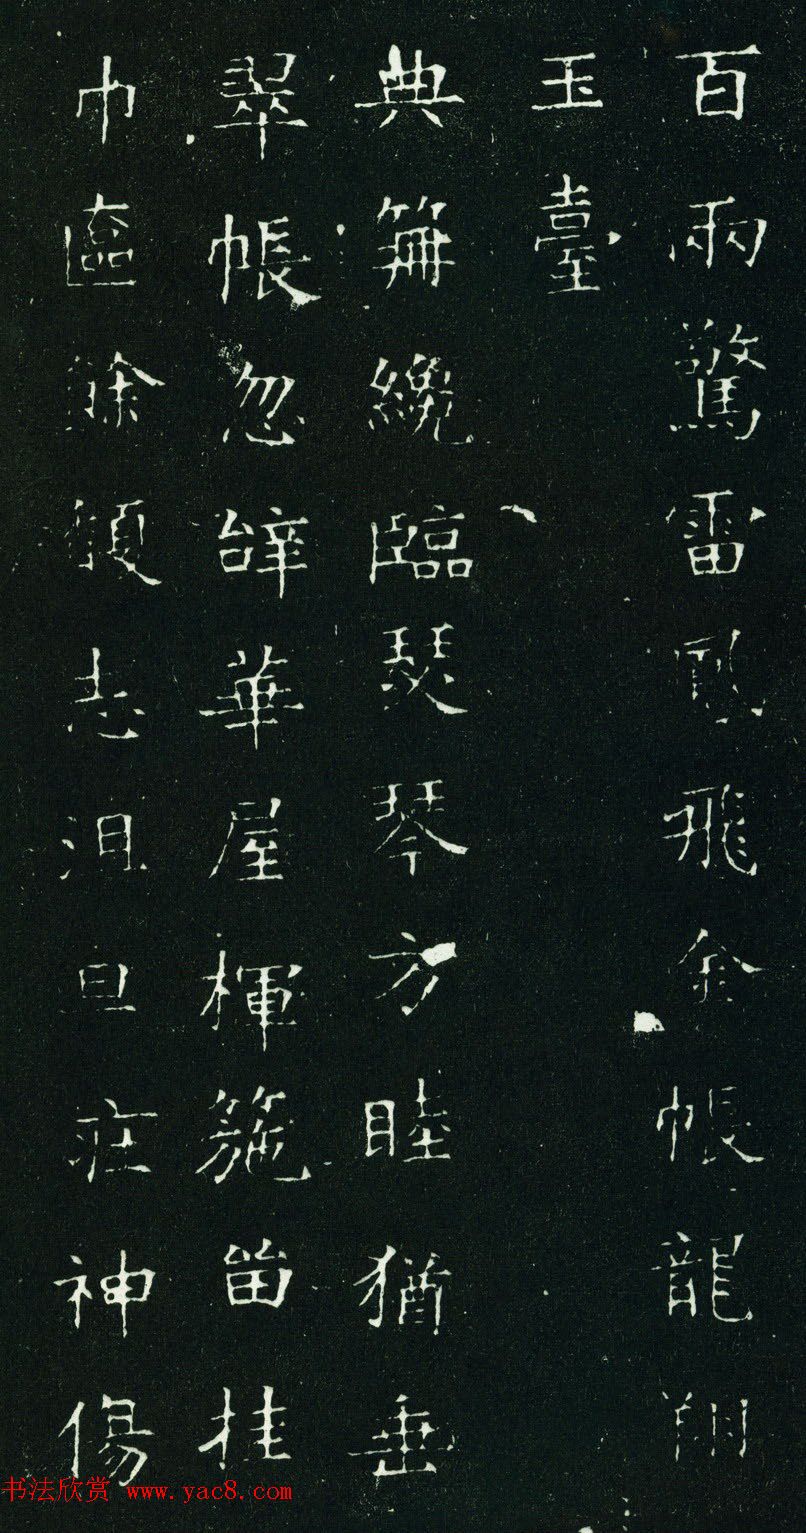 百兩驚雷鳳飛金帳龍翔
玉臺
典笧纔臨瑟琴方睦猶垂
翠帳忽辝華屋楎箷留挂
巾匳餘馥志沮旦庄神傷
书法欣赏 www.yac8.com